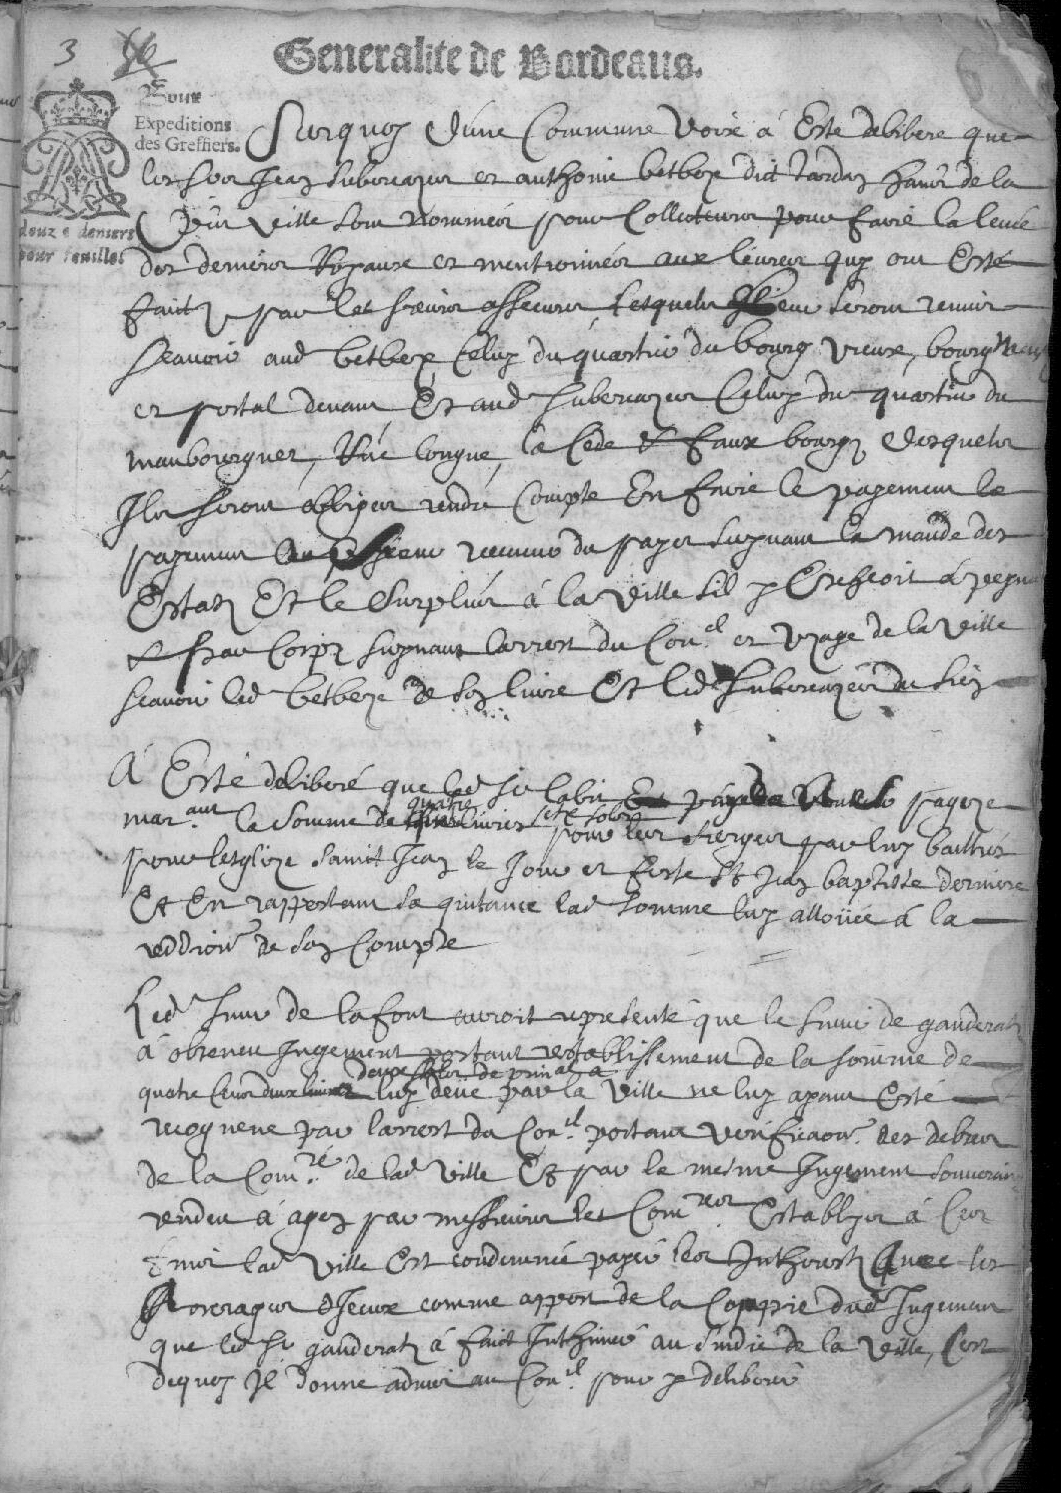 3
Generalite de Bordeaus.
Pour
Expeditions
des Greffiers.
douze deniers
pour feuillet
Surquoy d'une Commune Voix à Esté delibere que
les srs Jean Lubereazeur et anthonie betbeze dict Tardan hans de la
ville sont nommés pour Collecteurs pour faire la leveé
des deniers Royaux et mentionnés aux livres quy ont Esté
faicts par les sieurs assecurs lesquels seront remis
scavoir aud betbeze celuy du quartier du bourg vieux, bourg neuf
et portal devant Et aud Lubereazeur Celuy du quartier du
maubourguet, Rue longue, la Cede & faux bourgz desquels
Ils seront obliges rendre Compte En faire le payement le
payement au receveur du pays suyvant la mande des
Estatz Et le surplus à la ville sil y Escheoit à peyne
& par Corps suyvant larrest du Con.el et Uzage de la ville
scavoir led betbeze de son livre Et led Lubereazeur du sien
A Esté deliberé que led sr labit payera payeze
mar.ant la somme de quatre livres sept solz pour les cierges par luy bailhés
pour lesglize Sainct Jean le Jour et feste St Jean baptiste derniere
Et En rapportant sa quitance lad somme luy alloüée à la
reddion de son Compte
Led sieur de lafont auroit representé que le sieur de ganderatz
à obteneu Jugement portant restablissement de la somme de
quatre cens deux livres deux solz de prin.al à luy deüe par la ville ne luy ayant Esté
recogneue par larrest du Con.el portant verificaon. des debtes
de la Com.té de lad ville Et par le mesme Jugement souverain
rendeu à agen par messieurs les Com.res Establys à Ces
lad ville Est condemnée payer les Intherestz Avec les
Arrerages d'Iceux comme appert de la Coppie dud Jugement
que led sr ganderatz à faict Inthimer au sindic de la ville, Cest
dequoy Il donne advis au Con.el pour y deliberer